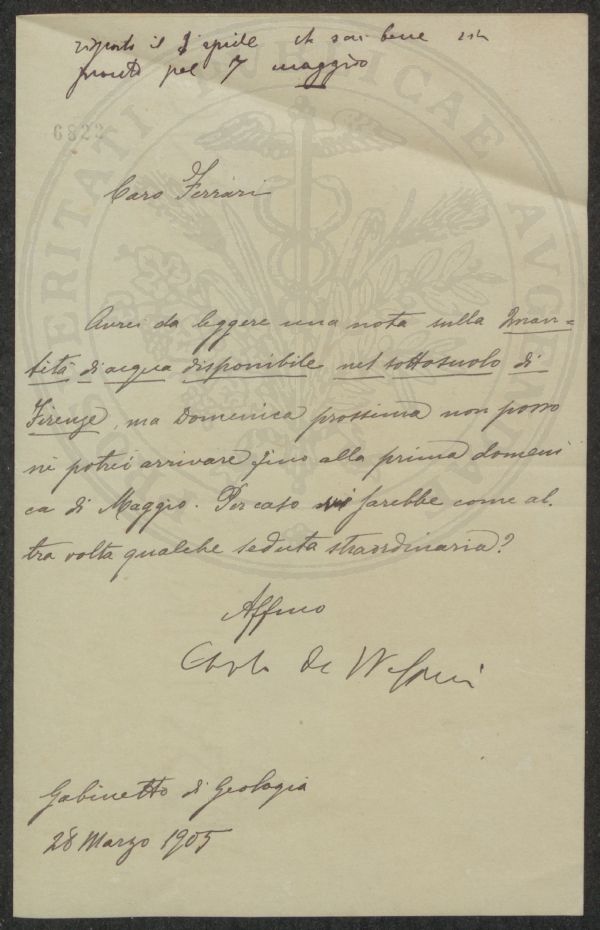 risposto il 1 aprile che sai bene
pronto pel 7 maggio
6822
PROSPERITATI PUBLICAE AUGENDAE
Caro Ferrari
Avrei da leggere una nota sulla Quan=
tità di acqua disponibile nel sottosuolo di
Firenze, ma Domenica prossima non posso
nè potrei arrivare fino alla prima domeni
ca di Maggio. Per caso si farebbe come al.
tra volta qualche seduta straordinaria?
Affmo
Carlo De Stefani
Gabinetto di Geologia
28 Marzo 1905